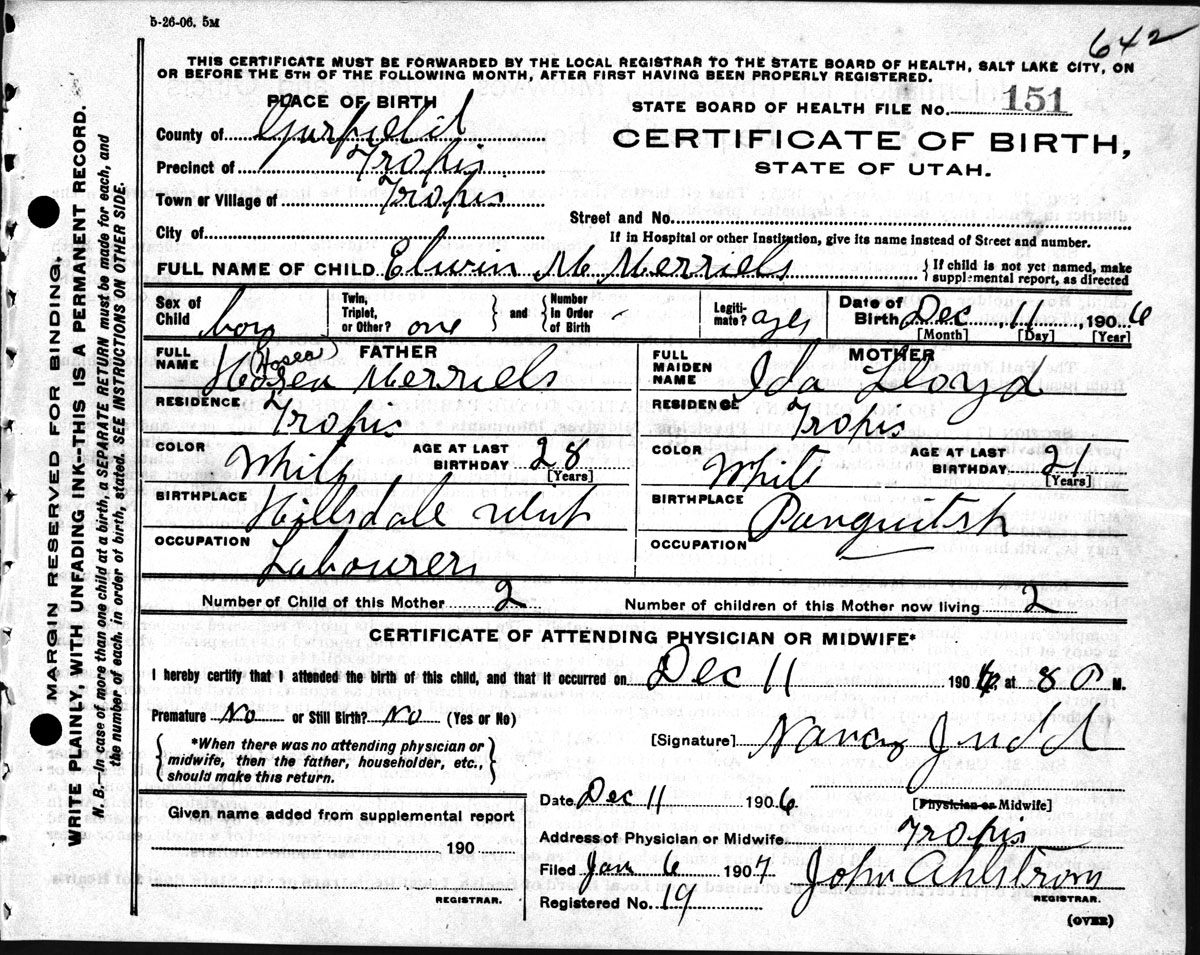 5-26-06. 5M
642
THIS CERTIFICATE MUST BE FORWARDED BY THE LOCAL REGISTRAR TO THE STATE BOARD OF HEALTH, SALT LAKE CITY, ON
OR BEFORE THE 5TH OF THE FOLLOWING MONTH, AFTER FIRST HAVING BEEN PROPERLY REGISTERED.
PLACE OF BIRTH
County of Garfield
Precinct of Tropic
Town or Village of Tropic
City of
STATE BOARD OF HEALTH FILE No. 151
CERTIFICATE OF BIRTH,
STATE OF UTAH.
Street and No.
If in Hospital or other Institution, give its name instead of Street and number.
FULL NAME OF CHILD Elwin M Merriels { If child is not yet named, make
supplemental report, as directed
Sex of Child boy
Twin, Triplet, or Other? one
and { Number in Order of Birth -
Legitimate? ayes
Date of Birth Dec 11, 1906
[Month] [Day] [Year]
FATHER
FULL NAME Hosea Merriels
Hosea
RESIDENCE Tropic
COLOR White AGE AT LAST BIRTHDAY 28 [Years]
BIRTHPLACE Hillsdale utah
OCCUPATION Labourer
MOTHER
FULL MAIDEN NAME Ida Lloyd
RESIDENCE Tropic
COLOR White AGE AT LAST BIRTHDAY 21 [Years]
BIRTHPLACE Panquitsh
OCCUPATION
Number of Child of this Mother 2 Number of children of this Mother now living 2
CERTIFICATE OF ATTENDING PHYSICIAN OR MIDWIFE*
I hereby certify that I attended the birth of this child, and that it occurred on Dec 11 1906, at 8 P M.
Premature No or Still Birth? No (Yes or No)
{ *When there was no attending physician or
midwife, then the father, householder, etc.,
should make this return. }
[Signature] Nancy Judd
Date Dec 11 1906 [Physician or Midwife]
Address of Physician or Midwife. Tropic
Given name added from supplemental report
190
REGISTRAR.
Filed Jan 6 1907 John Ahlstrom
REGISTRAR.
Registered No. 19
(OVER)
MARGIN RESERVED FOR BINDING.
WRITE PLAINLY, WITH UNFADING INK--THIS IS A PERMANENT RECORD.
N. B.—In case of more than one child at a birth, a SEPARATE RETURN must be made for each, and
the number of each, in order of birth, stated. SEE INSTRUCTIONS ON OTHER SIDE.